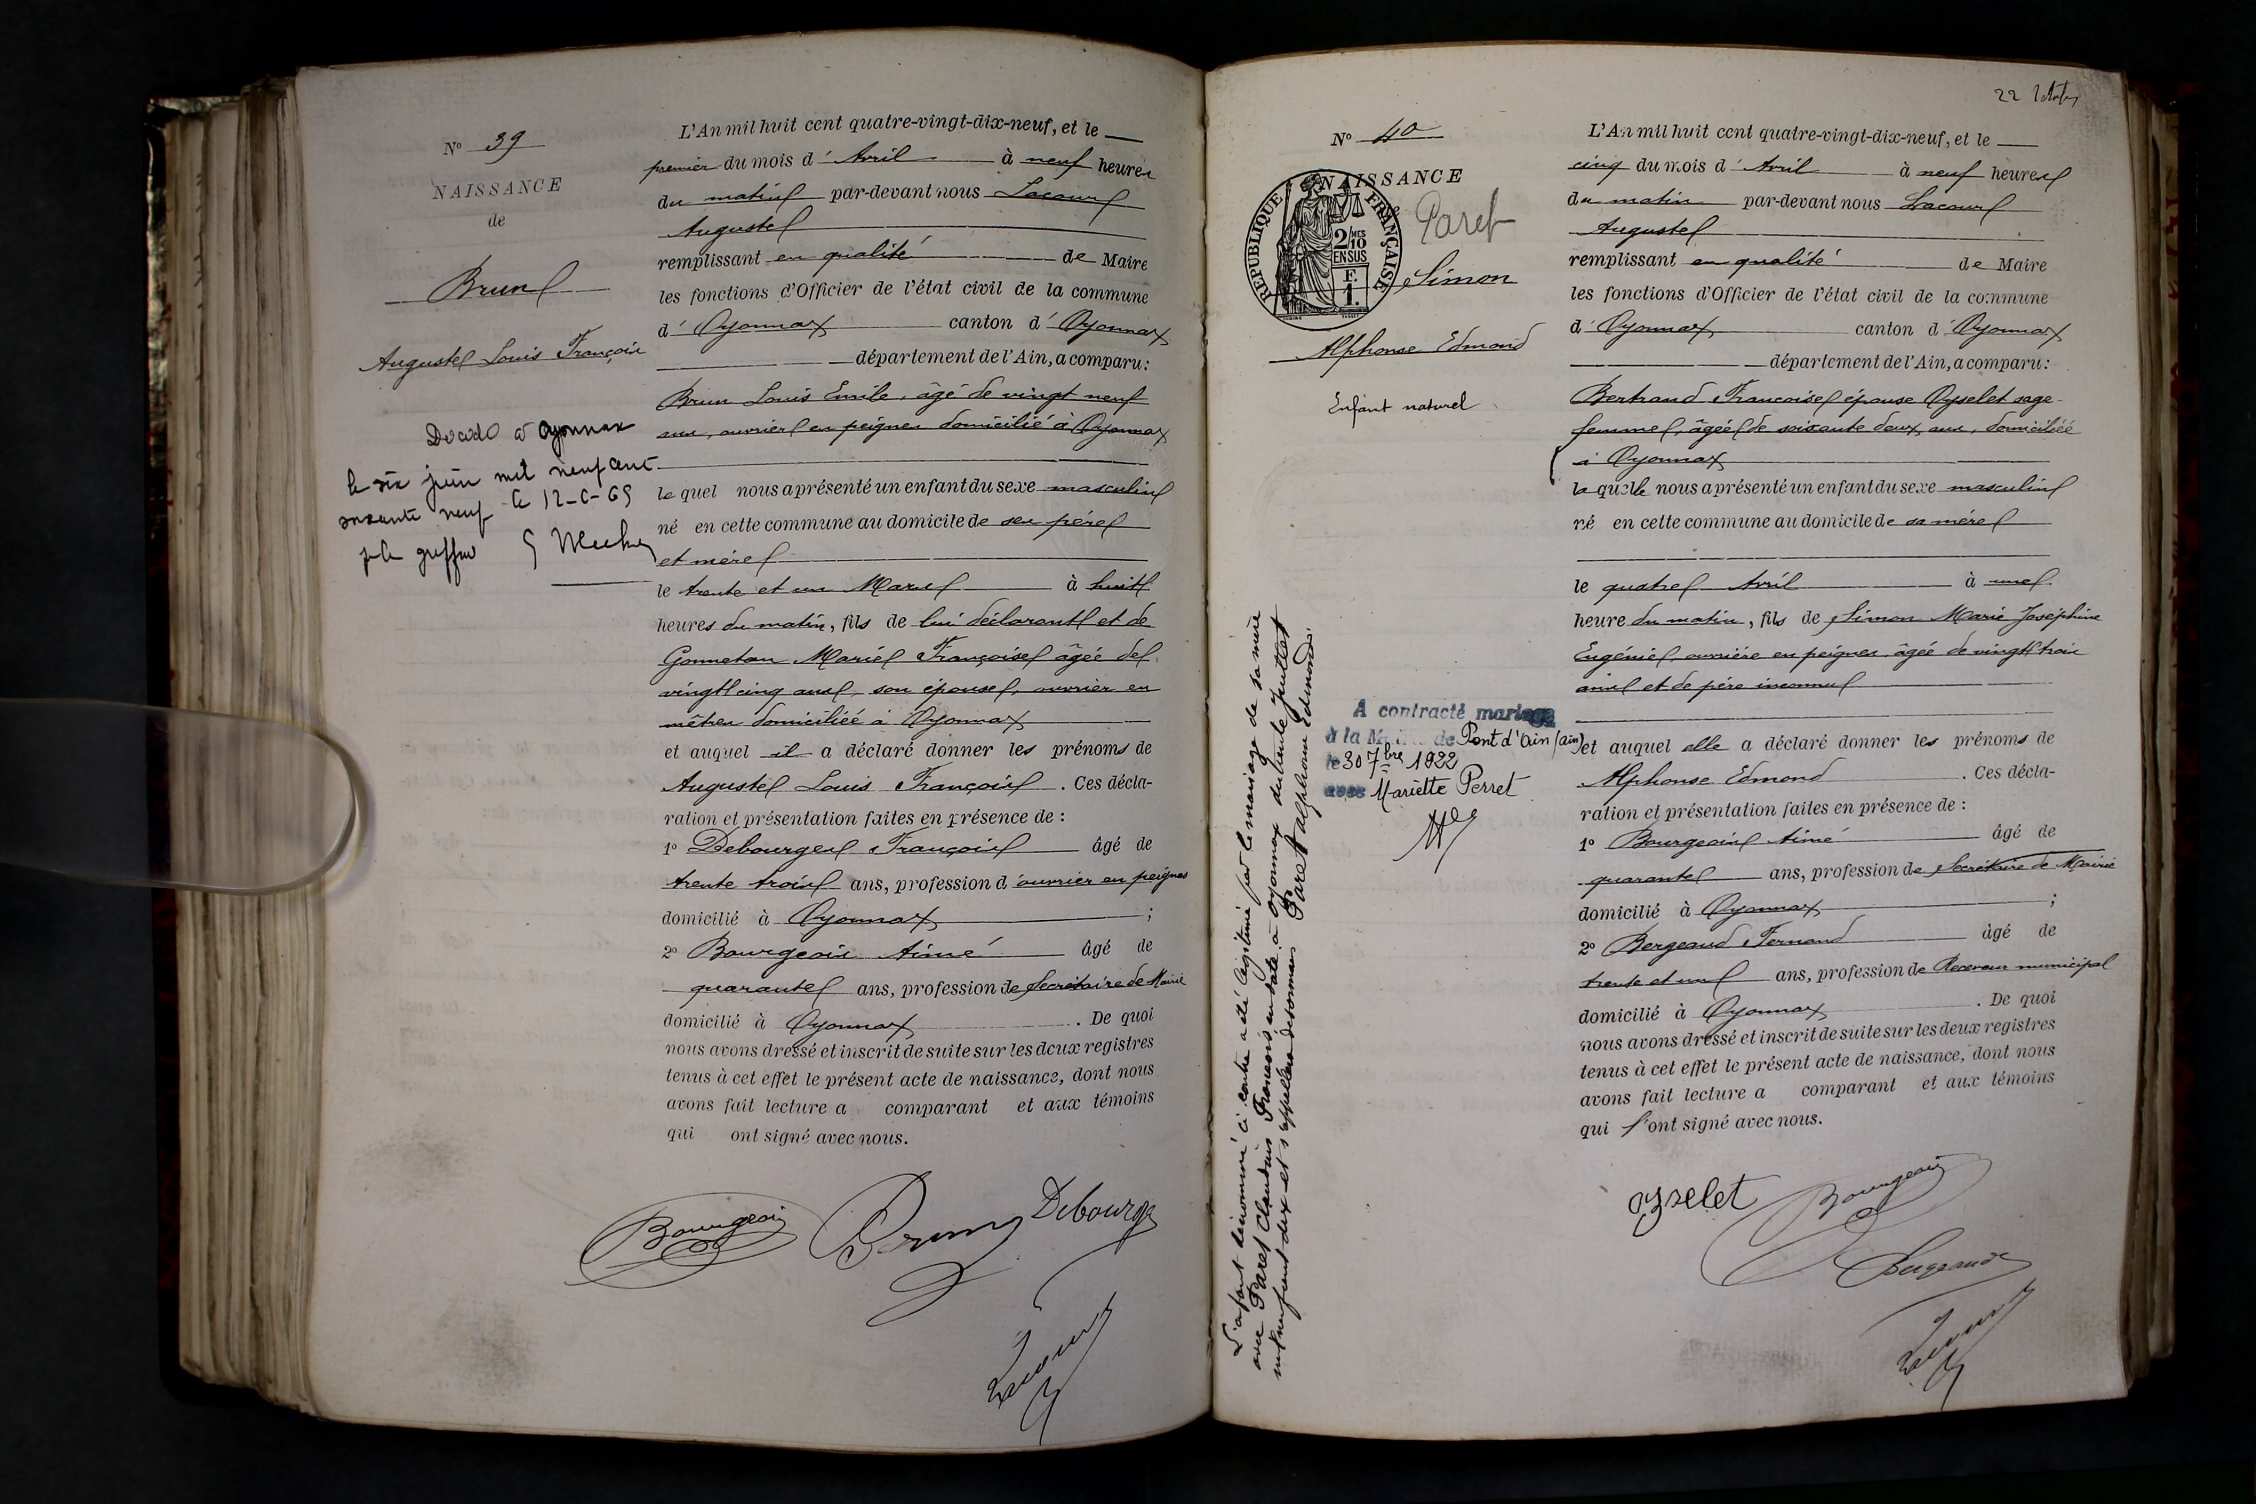 N° 39
NAISSANCE
de
Brun
Auguste Louis François
Décédé à Oyonnax
le six juin mil neuf cent
soixante neuf le 12-6-69
L'An mil huit cent quatre-vingt-dix-neuf, et le
premier du mois d'Avril à neuf heures
du matin par-devant nous Lacour
Auguste
remplissant en qualité de Maire
les fonctions d'Officier de l'état civil de la commune
d'Oyonnax canton d'Oyonnax
département de l'Ain, a comparu:
Brun Louis Emile, âgé de vingt neuf
ans, ouvrier en peignes domicilié à Oyonnax
le quel nous a présenté un enfant du sexe masculin
né en cette commune au domicile de ses père
et mère
le trente et un Mars à huit
heures du matin, fils de lui déclarant et de
Gonnetan Marie Françoise âgée de
vingt cinq ans, son épouse, ouvrier en
domiciliée à Oyonnax
et auquel il a déclaré donner les prénoms de
Auguste Louis François. Ces décla-
ration et présentation faites en présence de :
1° Debourge François âgé de
trente trois ans, profession d'ouvrier en peignes
domicilié à Oyonnax ;
2° Bourgeois Aimé âgé de
quarante ans, profession de Secrétaire de Mairie
domicilié à Oyonnax. De quoi
nous avons dressé et inscrit de suite sur les deux registres
tenus à cet effet le présent acte de naissance, dont nous
avons fait lecture a comparant et aux témoins
qui ont signé avec nous.
Bourgeois Brun Debourge
Lacour
22
N° 40
NAISSANCE
Paret
Simon
RÉPUBLIQUE FRANÇAISE
2 MES
10
EN SUS
F.
1.
Alphonse Edmond
Enfant naturel
A contracté mariage
à la Mairie de Pont d'Ain (Ain)
le 30 7bre 1922
avec Mariette Perret
L'enfant dénommé ci contre a été légitimé par le mariage de sa mère
avec Paret Claudius François en date à Oyonnax du trente Juillet
mil neuf cent dix et s'appellera désormais Paret Alphonse Edmond.
L'An mil huit cent quatre-vingt-dix-neuf, et le
cinq du mois d'Avril à neuf heures
du matin par-devant nous Lacour
Auguste
remplissant en qualité de Maire
les fonctions d'Officier de l'état civil de la commune
d'Oyonnax canton d'Oyonnax
département de l'Ain, a comparu:
Bertrand Françoise épouse Oyselet sage-
femme, âgée de soixante deux ans, domiciliée
à Oyonnax
la quelle nous a présenté un enfant du sexe masculin
né en cette commune au domicile de sa mère
le quatre Avril à une
heure du matin, fils de Simon Marie Joséphine
Eugénie, ouvrière en peignes âgée de vingt trois
ans et de père inconnu
et auquel elle a déclaré donner les prénoms de
Alphonse Edmond. Ces décla-
ration et présentation faites en présence de :
1° Bourgeois Aimé âgé de
quarante ans, profession de Secrétaire de Mairie
domicilié à Oyonnax ;
2° Bergeaud Fernand âgé de
trente et un ans, profession de Receveur municipal
domicilié à Oyonnax. De quoi
nous avons dressé et inscrit de suite sur les deux registres
tenus à cet effet le présent acte de naissance, dont nous
avons fait lecture a comparant et aux témoins
qui l'ont signé avec nous.
Oyselet Bourgeois
Bergeaud
Lacour